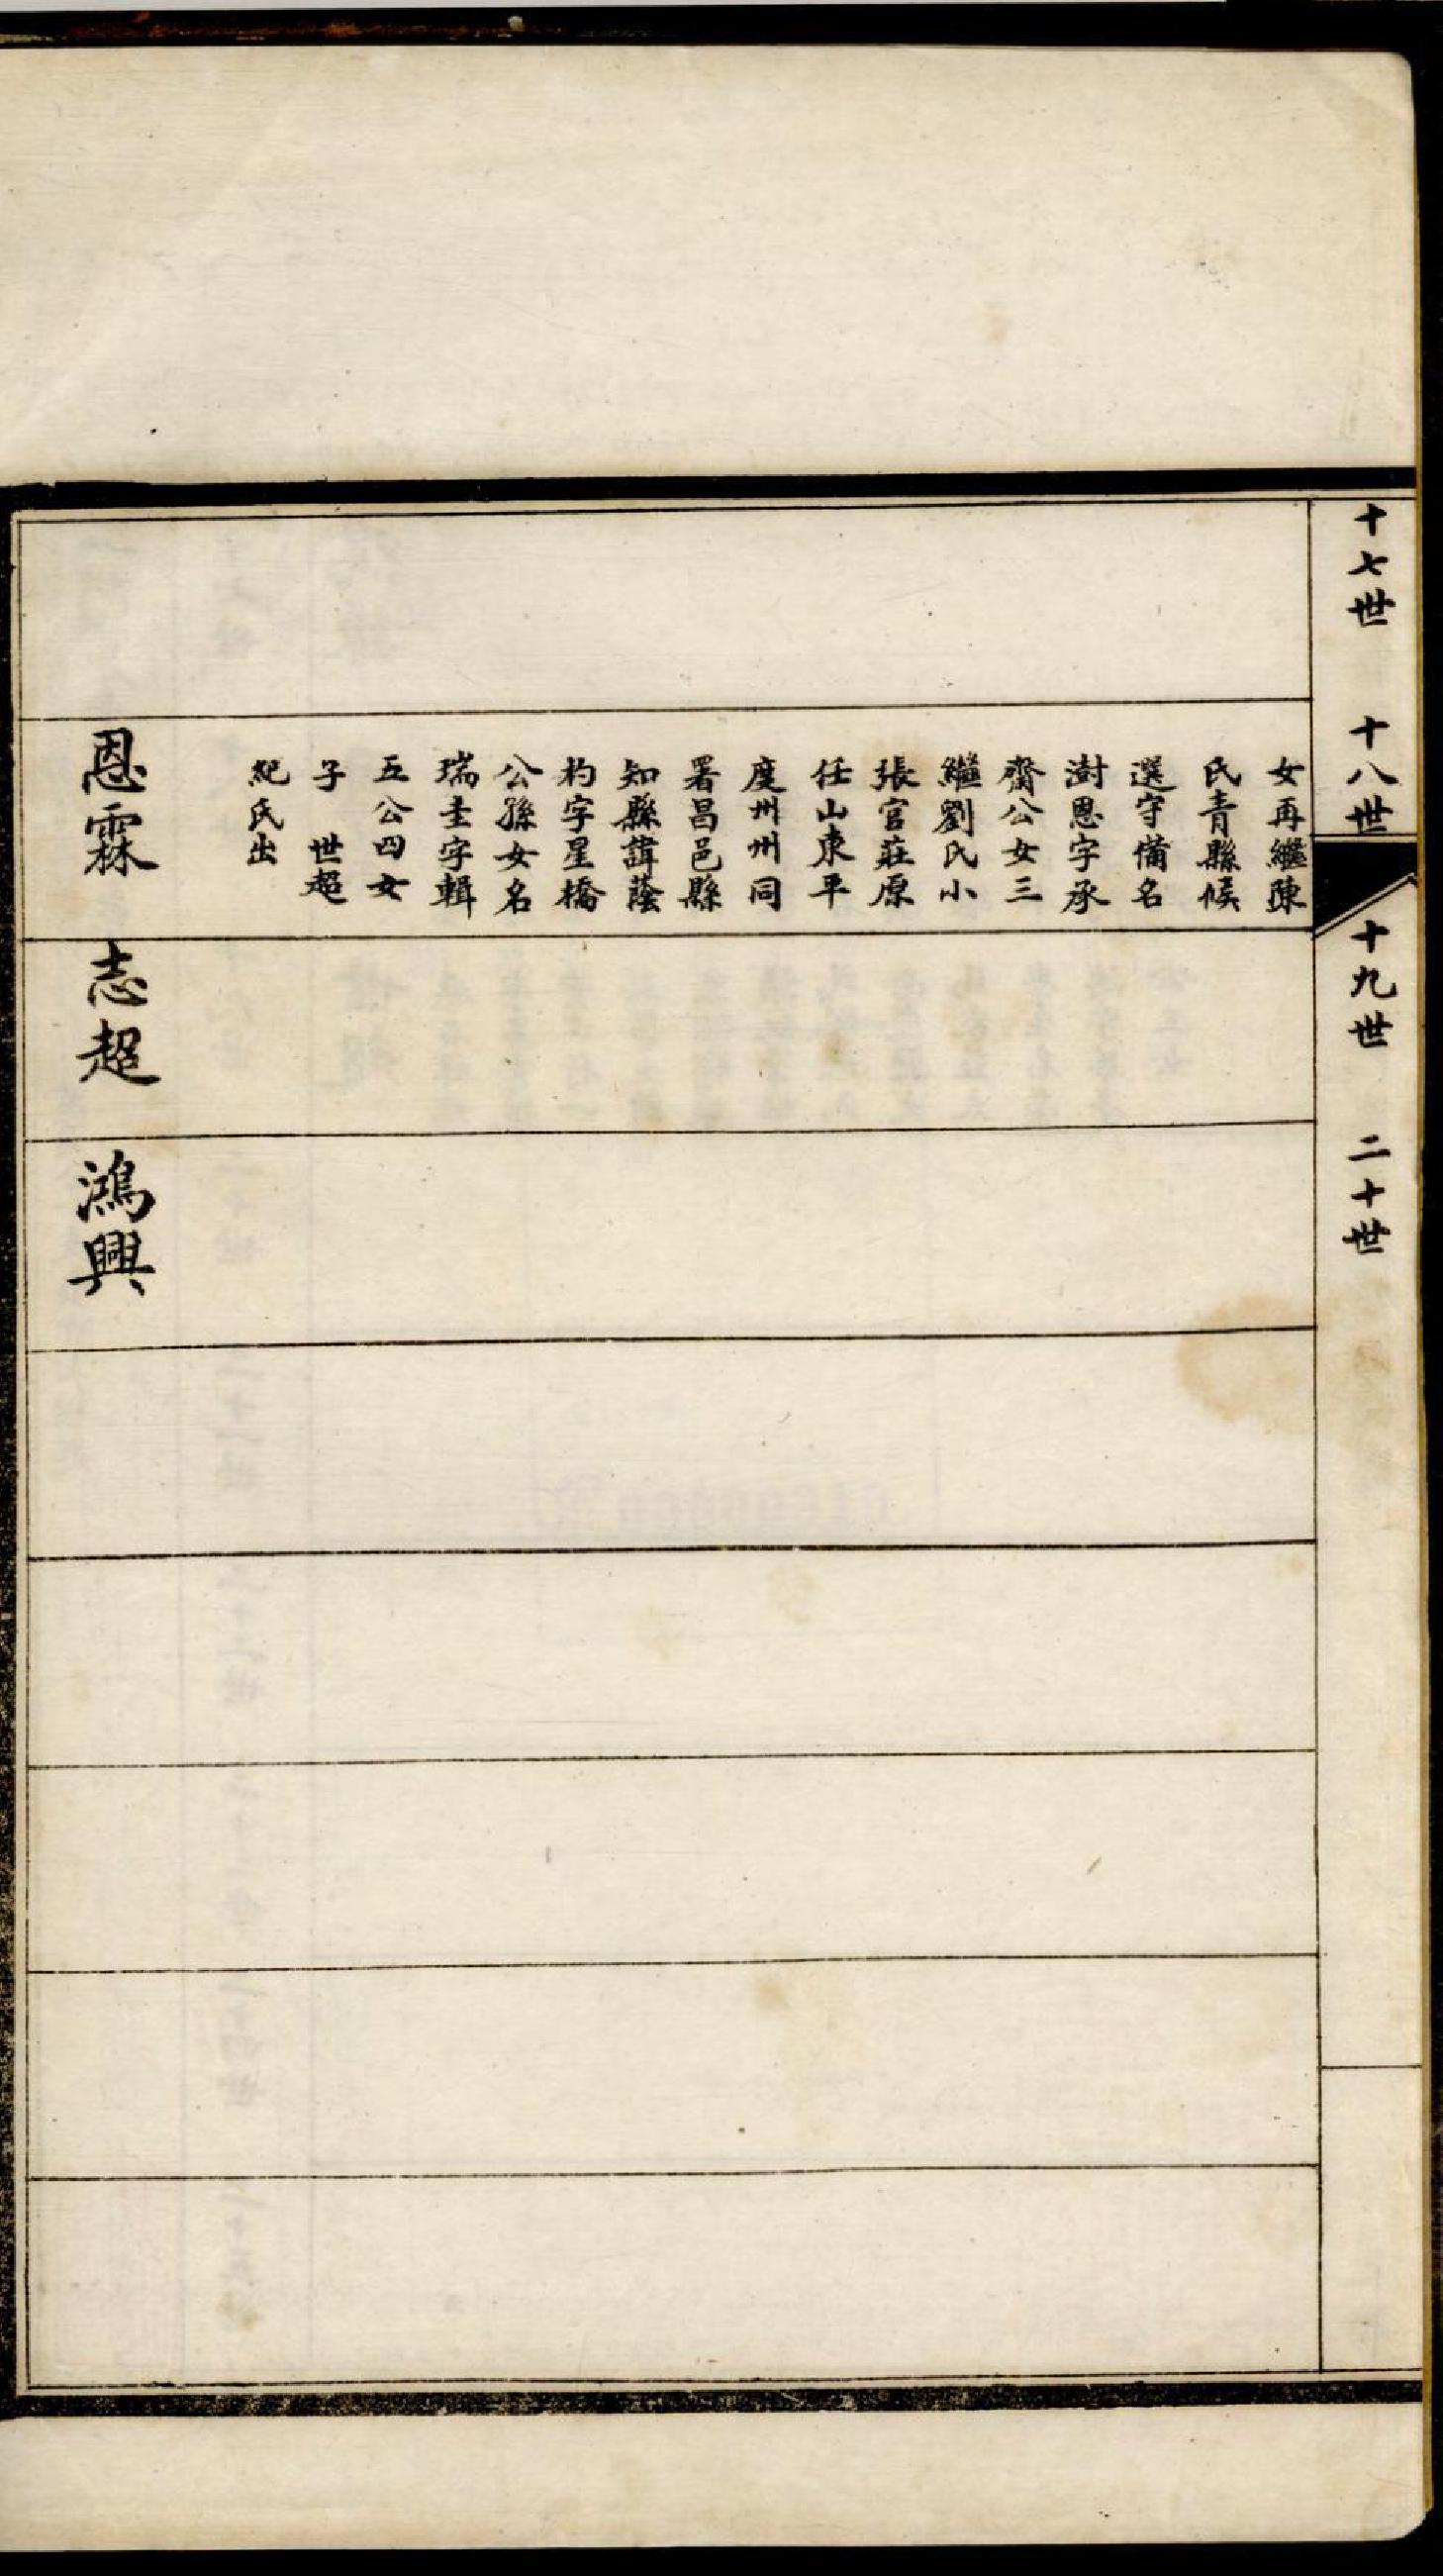 十七世
十八世
十九世
二十世
女再繼陳
氏青縣候
選守備名
澍恩字承
齋公女三
繼劉氏小
張官莊原
任山東平
度州州同
署昌邑縣
知縣諱蔭
杓字星橋
公孫女名
瑞圭字輯
五公四女
子 世超
紀氏出
恩霖
志超
鴻興